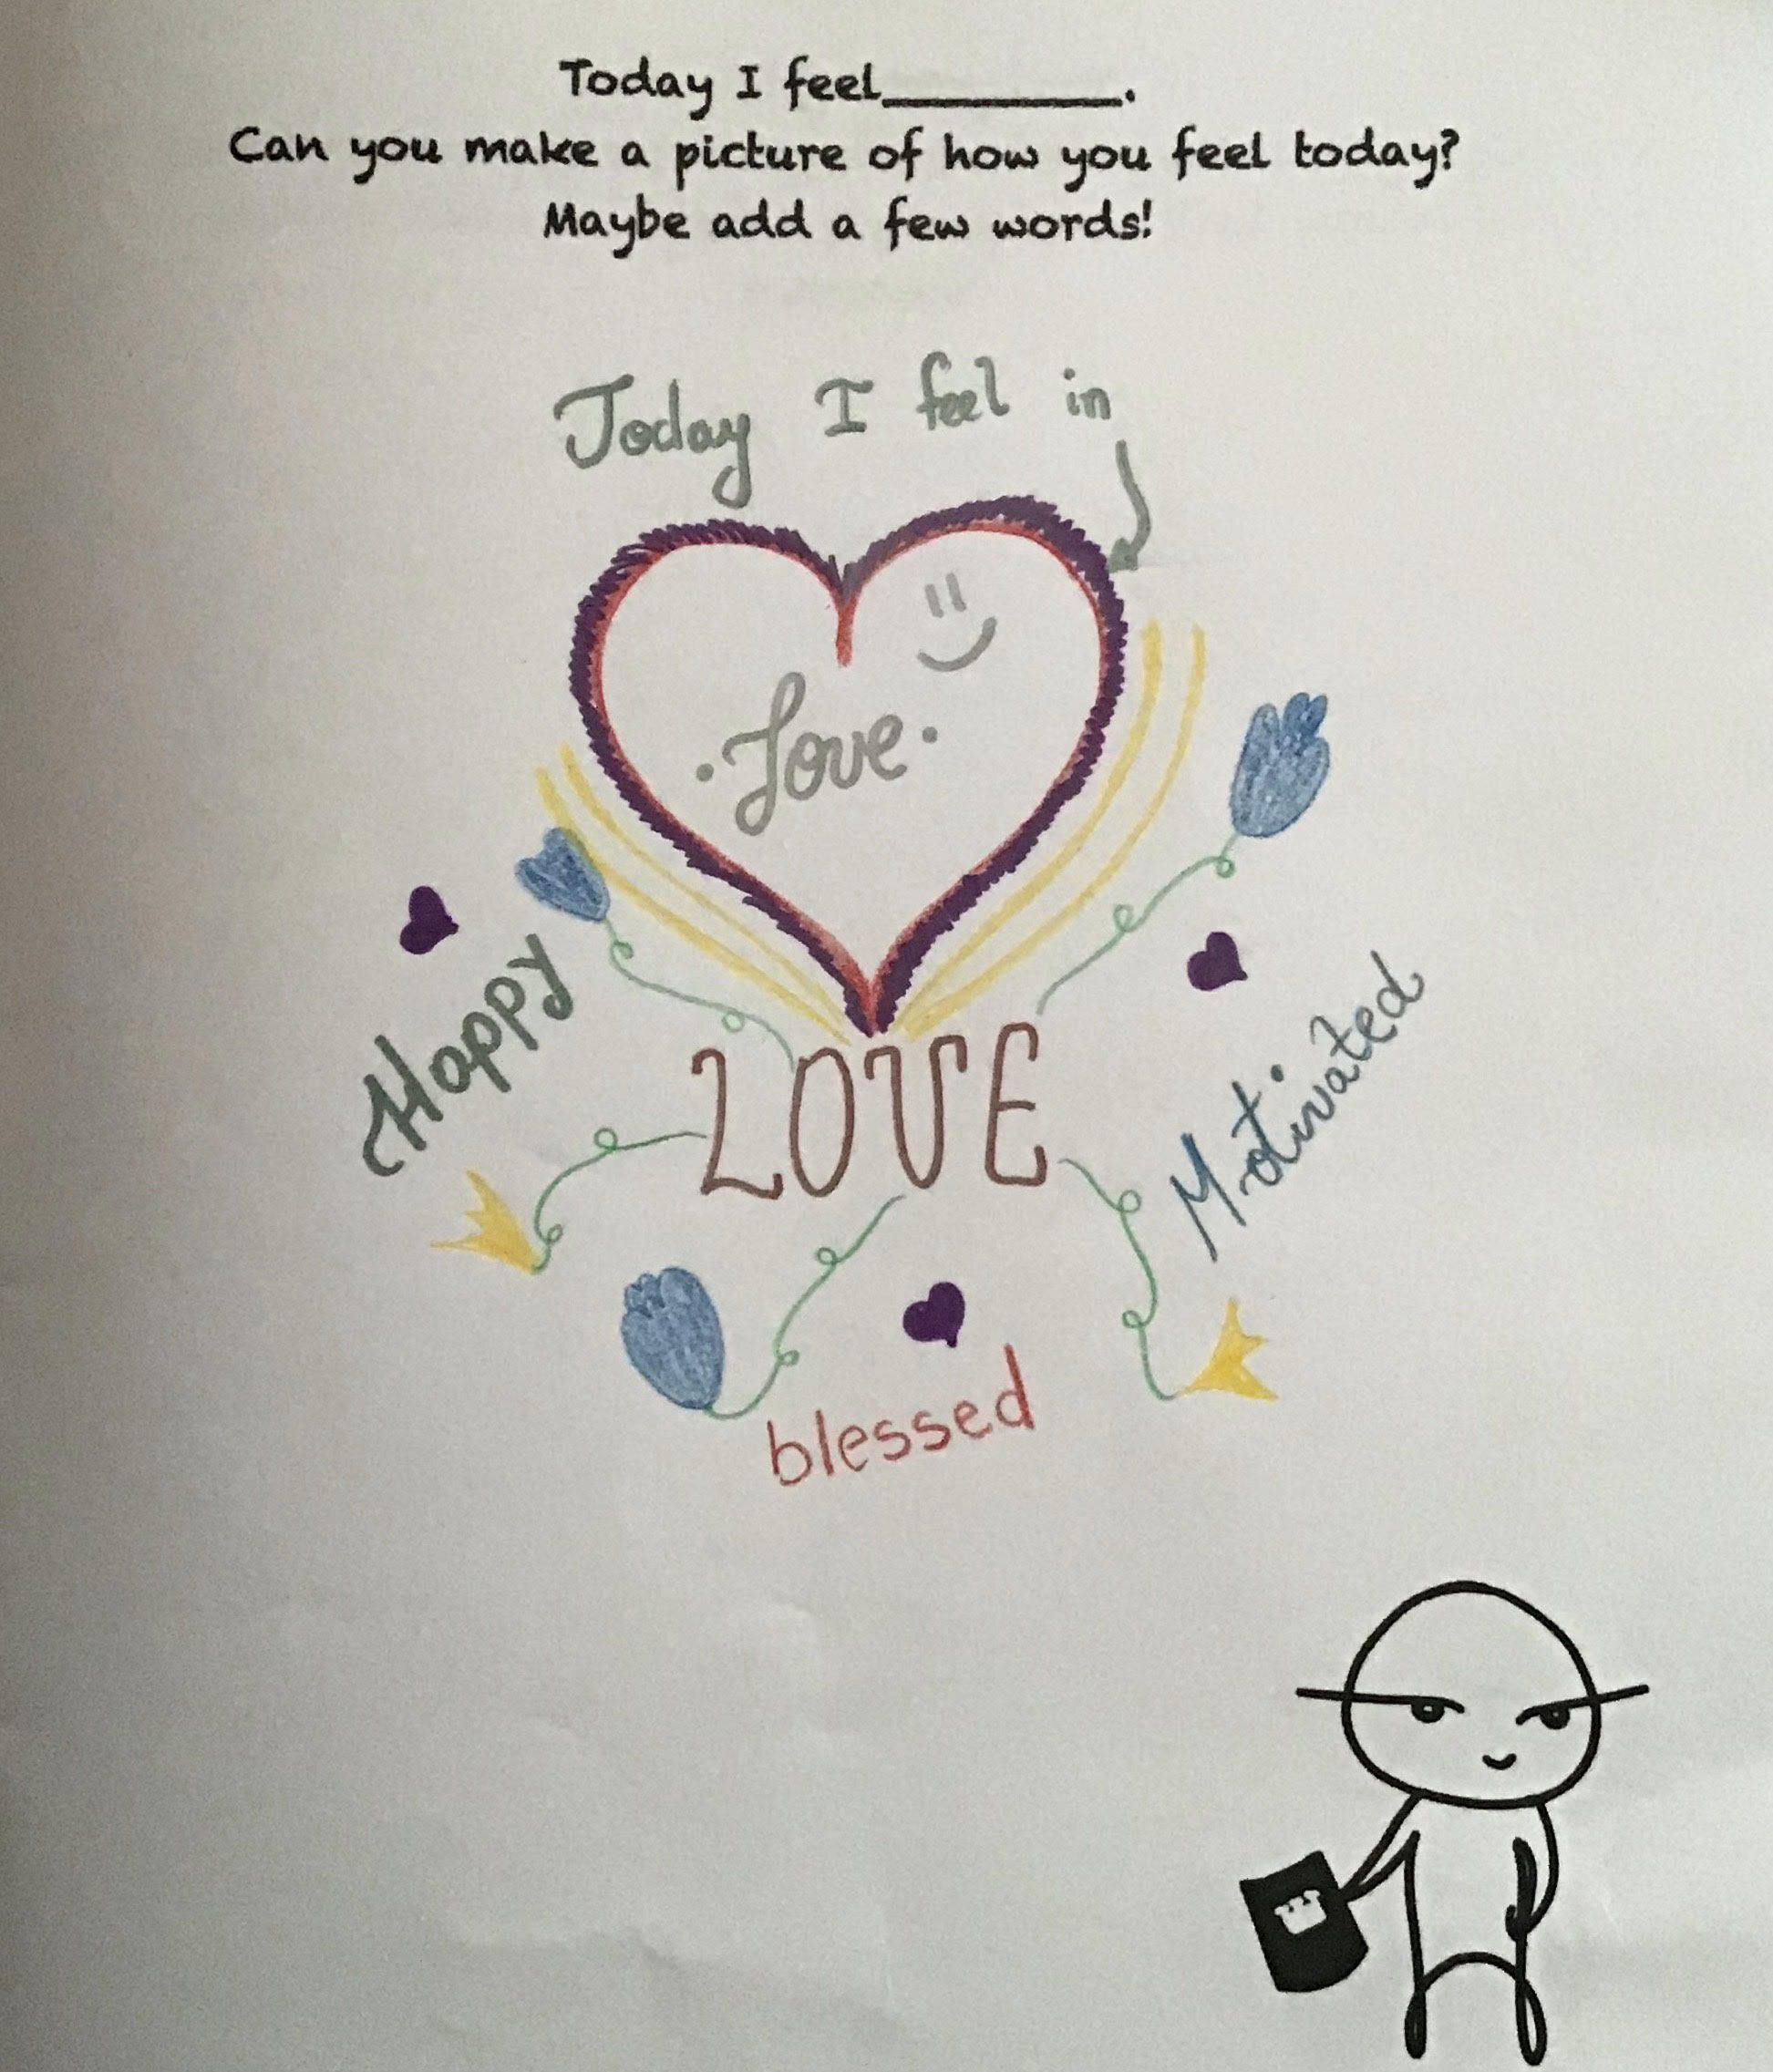 Today I feel________.
Can you make a picture of how you feel today?
Maybe add a few words!
Today I feel in
.Love.
Happy
LOVE
Motivated
blessed